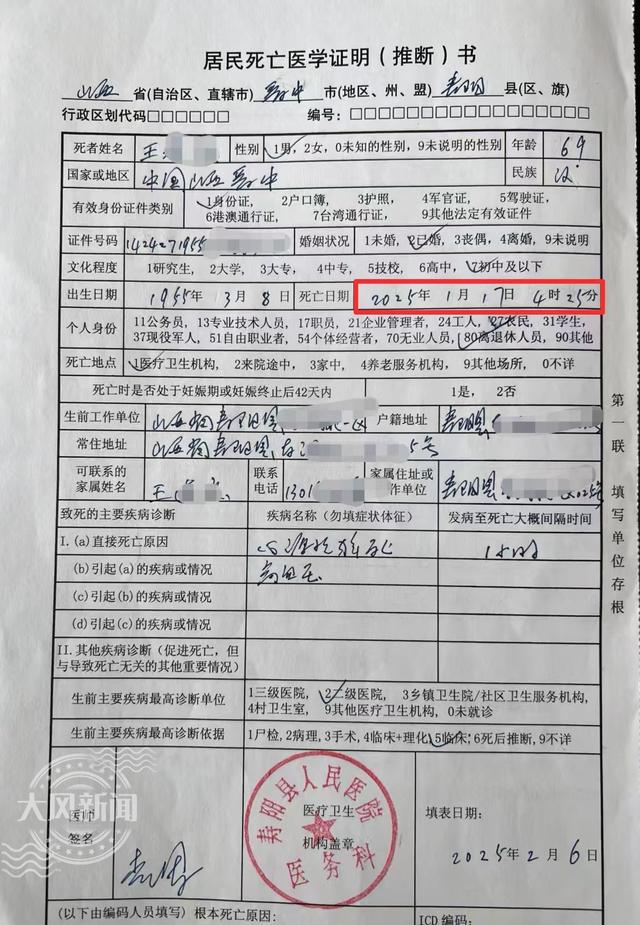 居民死亡医学证明（推断）书
山西 省(自治区、直辖市) 晋中 市(地区、州、盟) 寿阳 县(区、旗)
行政区划代码□□□□□□ 编号：□□□□□□□□□□□□□□□□□
死者姓名 王 性别 1男，2女，0未知的性别，9未说明的性别 年龄 69
国家或地区 中国山西晋中 民族 汉
有效身份证件类别 1身份证， 2户口簿， 3护照， 4军官证， 5驾驶证，
6港澳通行证， 7台湾通行证， 9其他法定有效证件
证件号码 1424271955 婚姻状况 1未婚，2已婚，3丧偶，4离婚，9未说明
文化程度 1研究生， 2大学， 3大专， 4中专， 5技校， 6高中， 7初中及以下
出生日期 1955年 3月8日 死亡日期 2025年 1月 17日 4时 25分
个人身份 11公务员，13专业技术人员，17职员，21企业管理者，24工人，27农民，31学生，
37现役军人，51自由职业者，54个体经营者，70无业人员，80离退休人员，90其他
死亡地点 1医疗卫生机构，2来院途中，3家中，4养老服务机构，9其他场所，0不详
死亡时是否处于妊娠期或妊娠终止后42天内 1是，2否
生前工作单位 山西省寿阳县 户籍地址 寿阳县
常住地址 山西省寿阳县 5号
可联系的
家属姓名 王 联系
电话 1301 家属住址或
工作单位 寿阳县
致死的主要疾病诊断 疾病名称（勿填症状体征） 发病至死亡大概间隔时间
I.(a)直接死亡原因 心源性猝死 1小时
(b)引起(a)的疾病或情况 高血压
(c)引起(b)的疾病或情况
(d)引起(c)的疾病或情况
II.其他疾病诊断（促进死亡，但
与导致死亡无关的其他重要情况）
生前主要疾病最高诊断单位 1三级医院， 2二级医院， 3乡镇卫生院/社区卫生服务机构，
4村卫生室， 9其他医疗卫生机构，0未就诊
生前主要疾病最高诊断依据 1尸检，2病理，3手术，4临床+理化，5临床，6死后推断，9不详
医师
签名
医疗卫生
机构盖章
寿阳县人民医院
医务科
填表日期：
2025年2月6日
(以下由编码人员填写）根本死亡原因： ICD编码：
第一联 填写单位存根
大风新闻